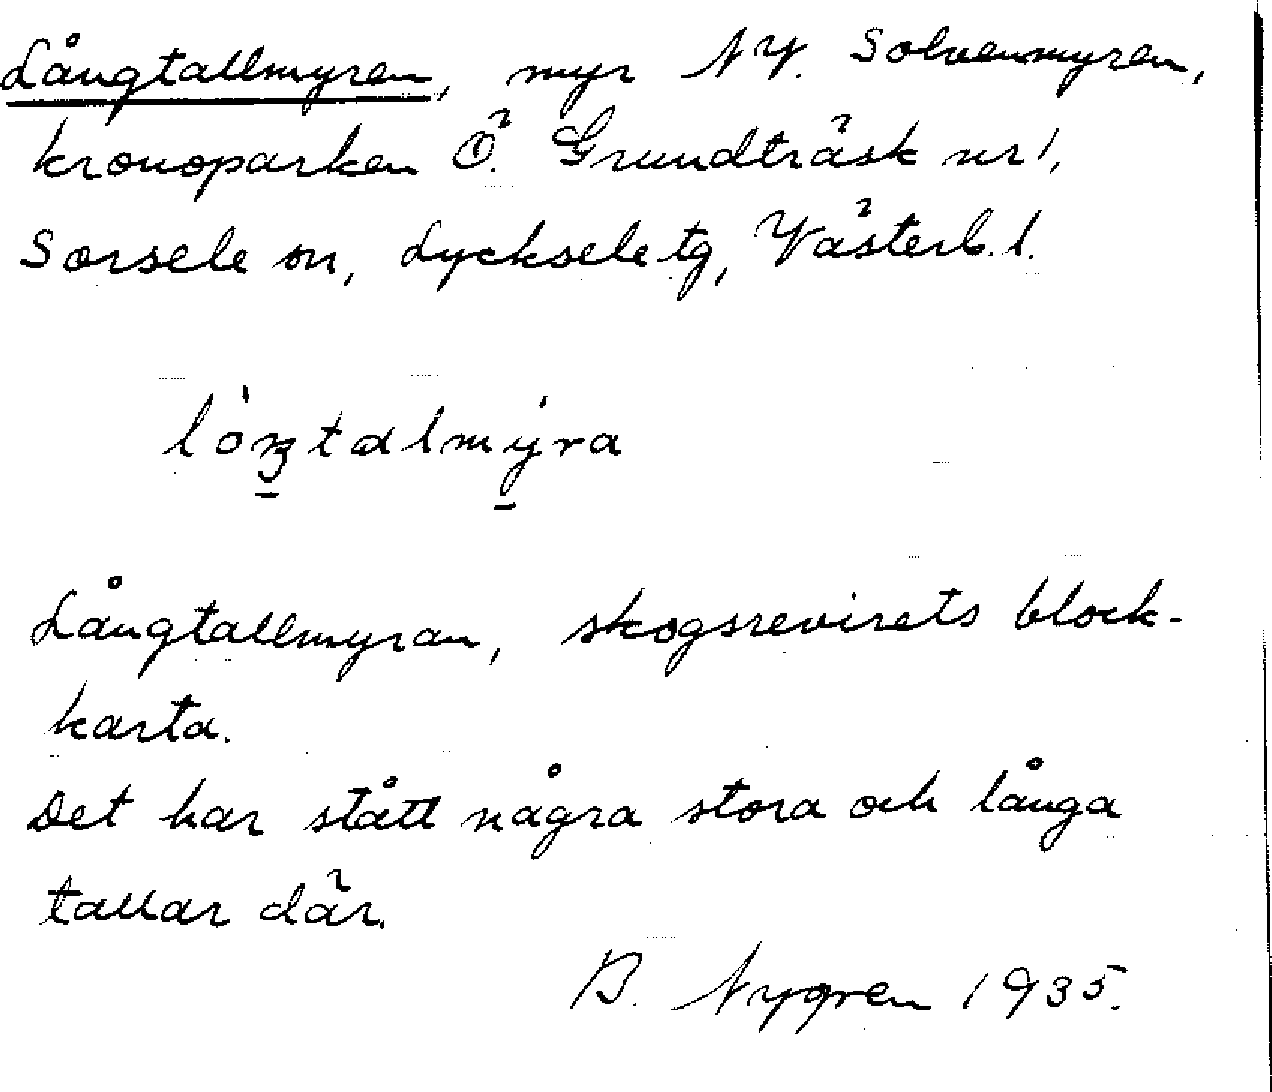 Långtallmyren, myr NV. Solvenmyren,
kronoparken Ö. Grundträsk nr 1,
Sorsele sn, Lycksele tg, Västerb. l.
Långtallmyran, skogsrevirets block-
karta.
Det har stått några stora och långa
tallar där.
B. Nygren 1935.